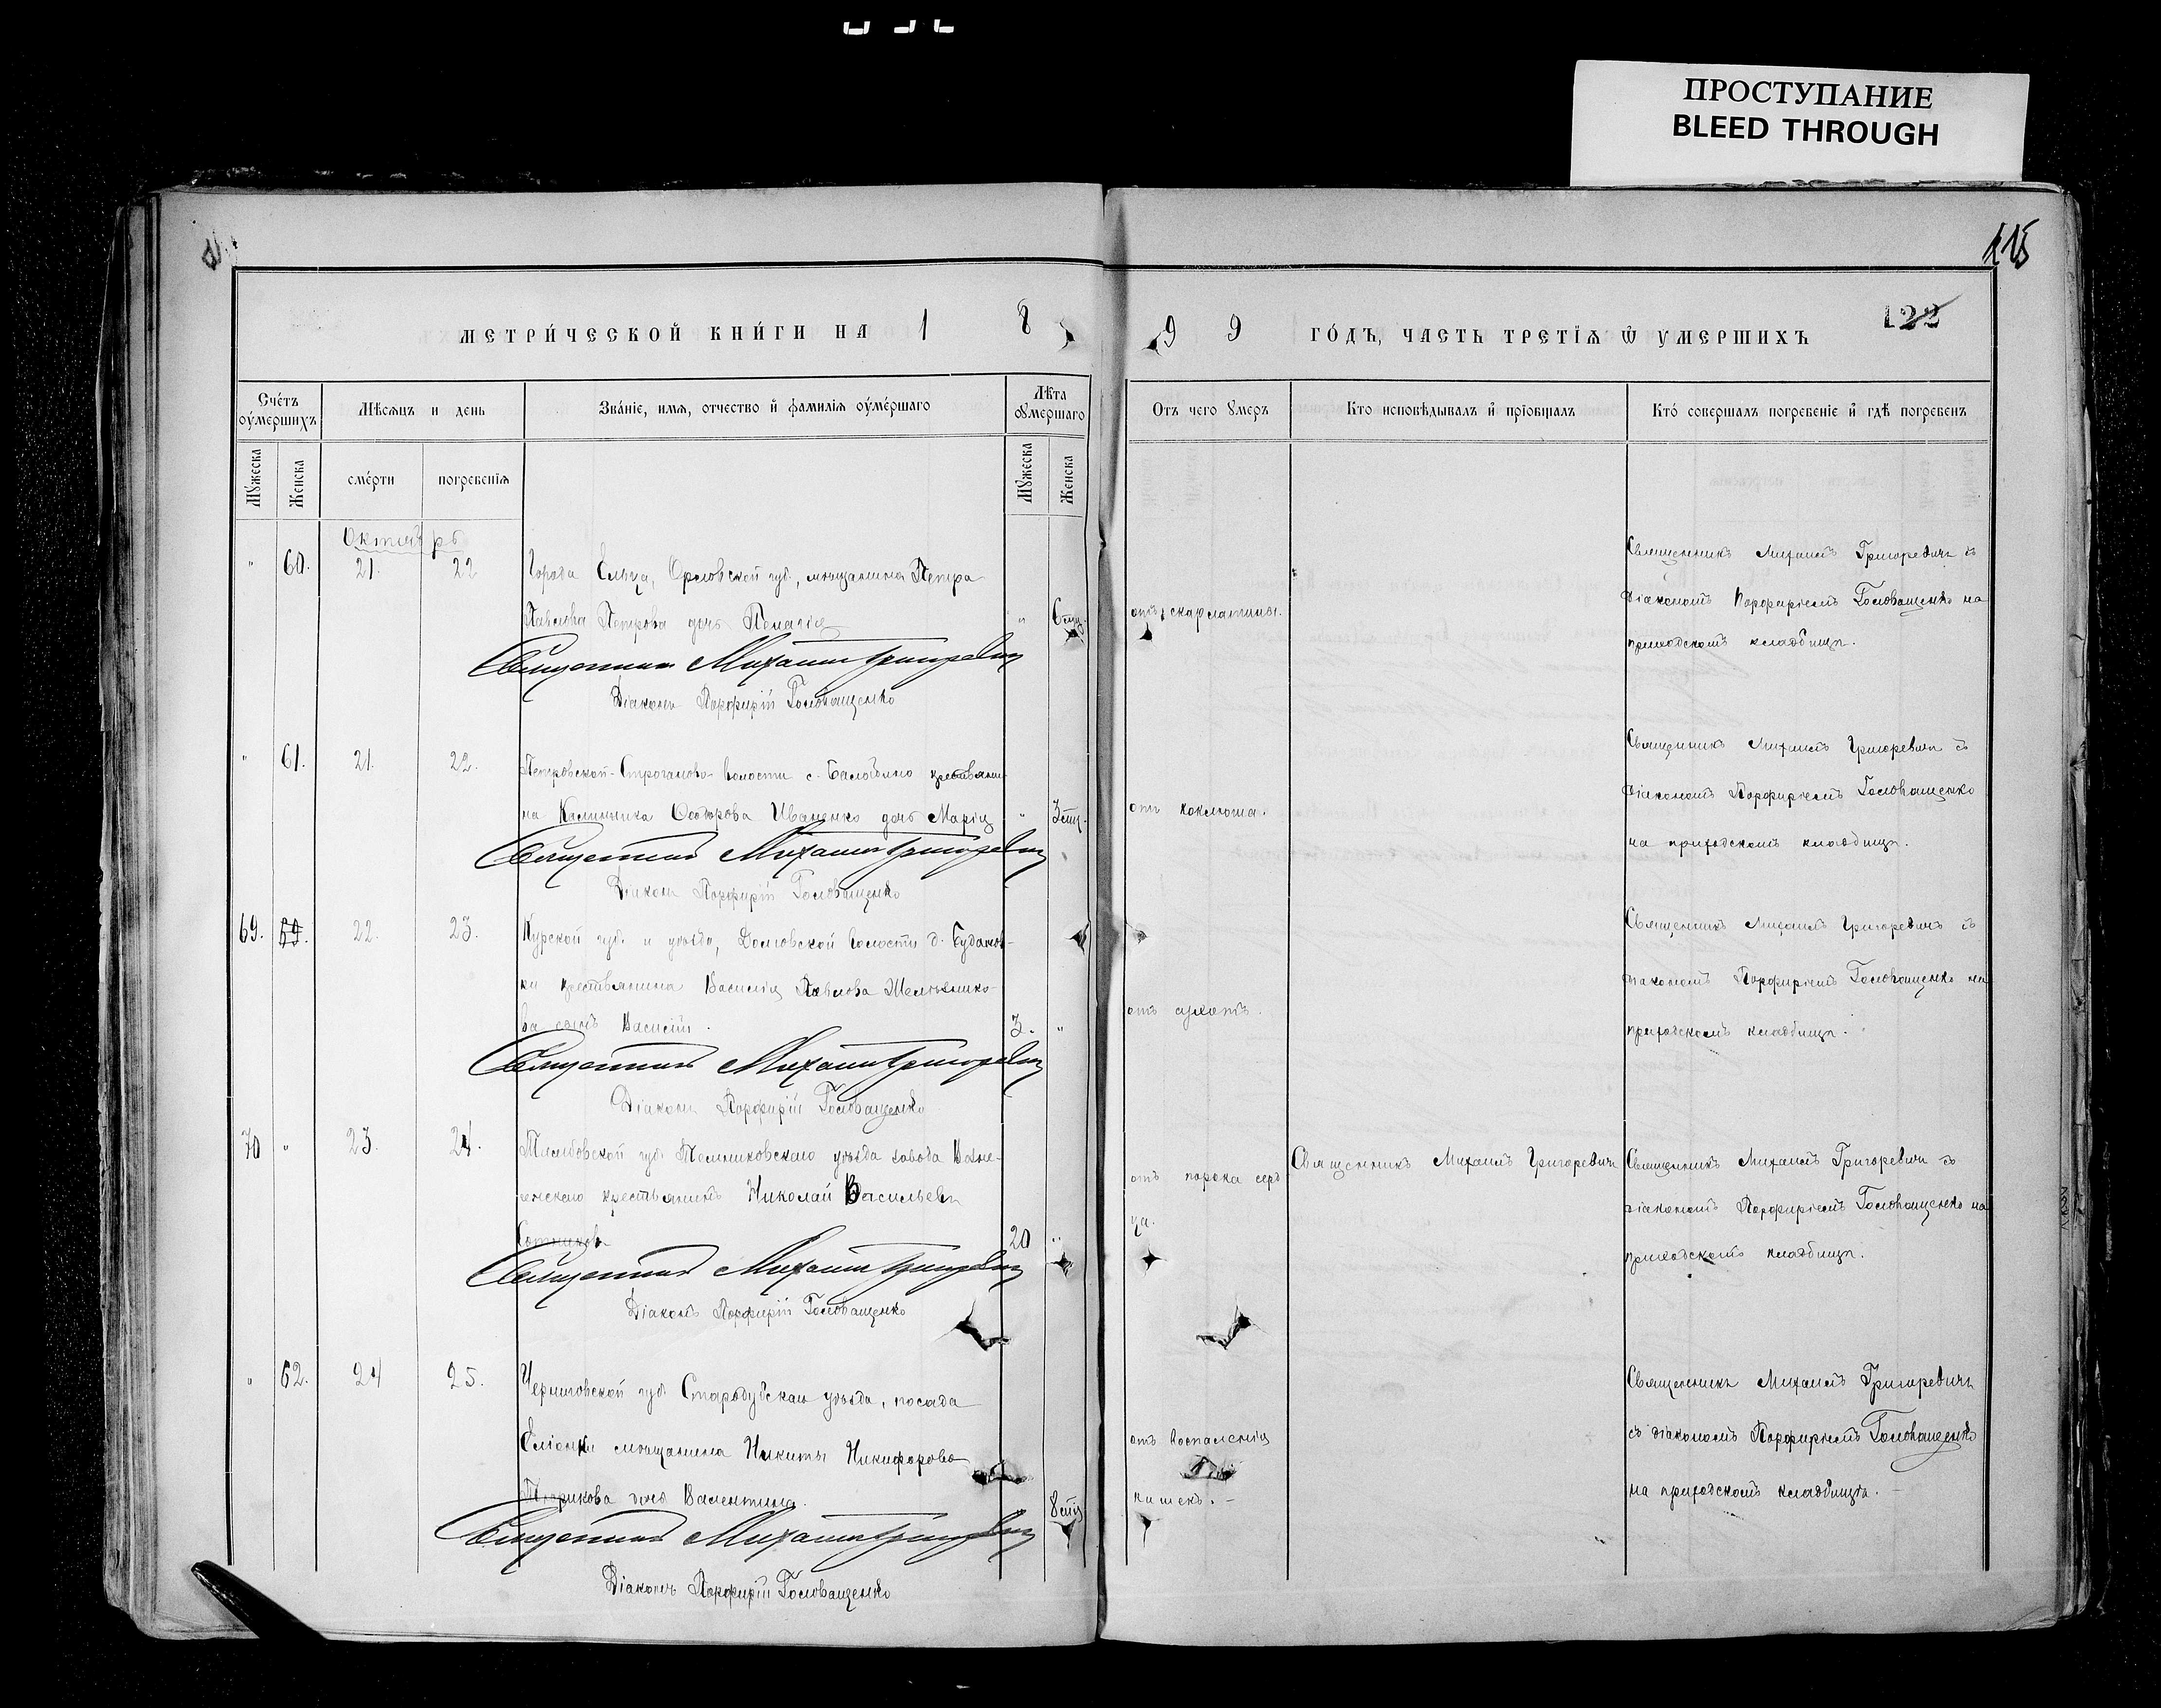 ПРОСТУПАНИЕ
BLEED THROUGH
115
122
МЕТРИ́ЧЕСКОЙ КНИ́ГИ НА 1 8 9 9 ГО́ДЪ, ЧАСТЬ ТРЕТІѦ Ѿ УМЕРШИХЪ
Сче́тъ оу҆ме́ршихъ
Мѣсѧцъ и день
Зва́нїе, имѧ, отчество и҆ фамилїѧ оу҆ме́ршаго
Лѣта оу҆мершаго
Отъ чего умеръ
Кто исповѣдывалъ и҆ прїобщалъ
Кто́ совершалъ погребенїе и҆ гдѣ погребенъ
Мꙋжеска
Женска
сме́рти
погребенїѧ
Мꙋжеска
Женска
Октябрь
" 60. 21. 22
Города Ельца, Орловской губ., мѣщанина Петра
Павлова Петрова дочь Пелагія " 6 мц.
отъ скарлатины.
Священникъ Михаилъ Григоревичъ съ
діакономъ Порфиріемъ Головащенко на
приходскомъ кладбищѣ.
Священникъ Михаилъ Григоревичъ
Діаконъ Порфирій Головащенко
" 61. 21. 22.
Петровской-Строганово-волости с. Балодино крестьяни-
на Калинника Ѳедорова Иваненко дочь Марія "
отъ коклюша.
Священникъ Михаилъ Григоревичъ съ
діакономъ Порфиріемъ Головащенко
на приходскомъ кладбищѣ.
Священникъ Михаилъ Григоревичъ
Діаконъ Порфирій Головащенко
69. 22. 23.
Курской губ. и уѣзда, Долговской волости д. Будановки
крестьянина Василія Павлова Мельнико-
ва сынъ Василій. 3. "
Священникъ Михаилъ Григоревичъ съ
діакономъ Порфиріемъ Головащенко на
приходскомъ кладбищѣ.
Священникъ Михаилъ Григоревичъ
Діаконъ Порфирій Головащенко
70 " 23. 24.
Тамбовской губ. Темниковскаго уѣзда завода Возне-
сенскаго крестьянинъ Николай Васильевъ
Сотниковъ 20 "
отъ порока серд-
ца.
Священникъ Михаилъ Григоревичъ
Священникъ Михаилъ Григоревичъ съ
діакономъ Порфиріемъ Головащенко на
приходскомъ кладбищѣ.
Священникъ Михаилъ Григоревичъ
Діаконъ Порфирій Головащенко
" 62. 24 25.
Черниговской губ. Стародубскаго уѣзда, посада
Еліонки мѣщанина Никиты Никифорова
дочь Валентина.
отъ воспаленія
кишекъ. -
Священникъ Михаилъ Григоревичъ
съ діакономъ Порфиріемъ Головащенко
на приходскомъ кладбищѣ. -
Священникъ Михаилъ Григоревичъ
Діаконъ Порфирій Головащенко